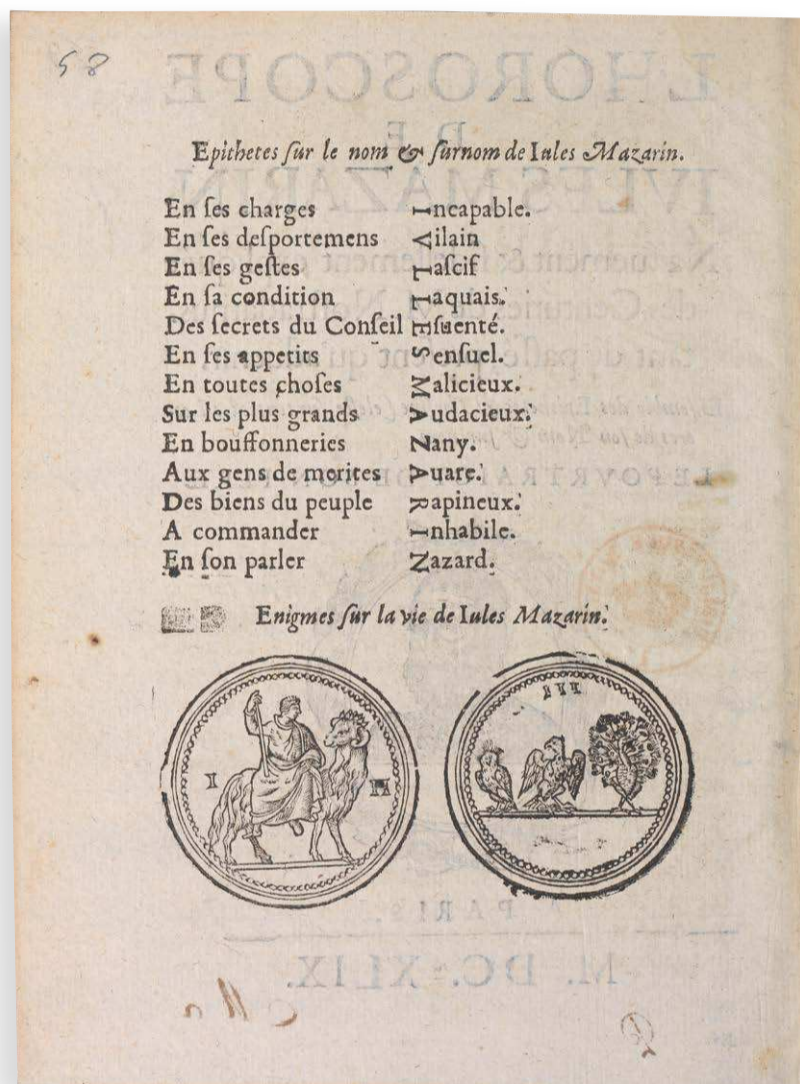 58
Epithetes ſur le nom & ſurnom de Iules Mazarin.
En ſes charges Incapable.
En ſes deſportemens Vilain
En ſes geſtes Laſcif
En ſa condition Laquais.
Des ſecrets du Conſeil Eſuenté.
En ſes appetits Senſuel.
En toutes choſes Malicieux.
Sur les plus grands Audacieux.
En bouffonneries Nany.
Aux gens de merites Auare.
Des biens du peuple Rapineux.
A commander Inhabile.
En ſon parler Nazard.
Enigmes ſur la vie de Iules Mazarin.
I II
III